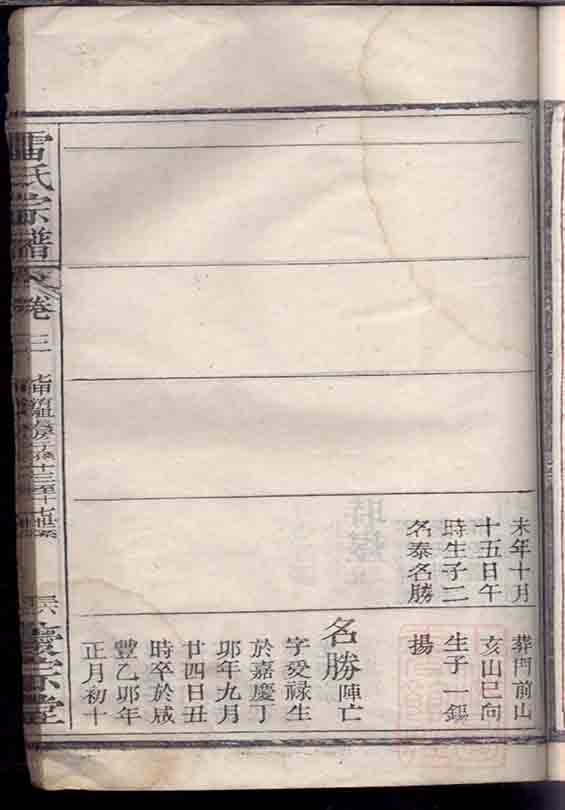 未年十月
十五日午
時生子二
名泰名勝
葬門前山
亥山巳向
生子一錫
揚
名勝陣亡
字爱禄生
於嘉慶丁
卯年九月
廿四日丑
時卒於咸
豐乙卯年
正月初十
雷氏宗譜
卷三